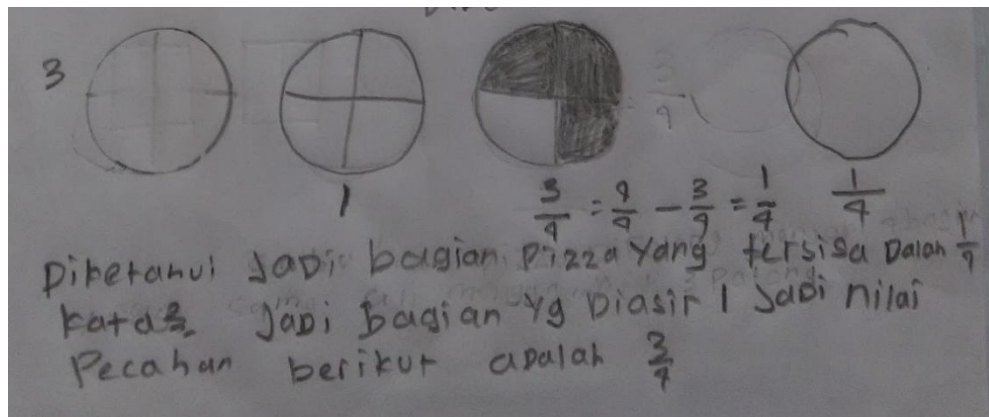 3
1
3/4 = 4/4 - 3/4 = 1/4
1/4
Diketahui Jadi bagian Pizza yang tersisa Dalah 1/4
Jadi bagian yg Diasir 1 Jadi nilai
Pecahan berikut adalah 3/4